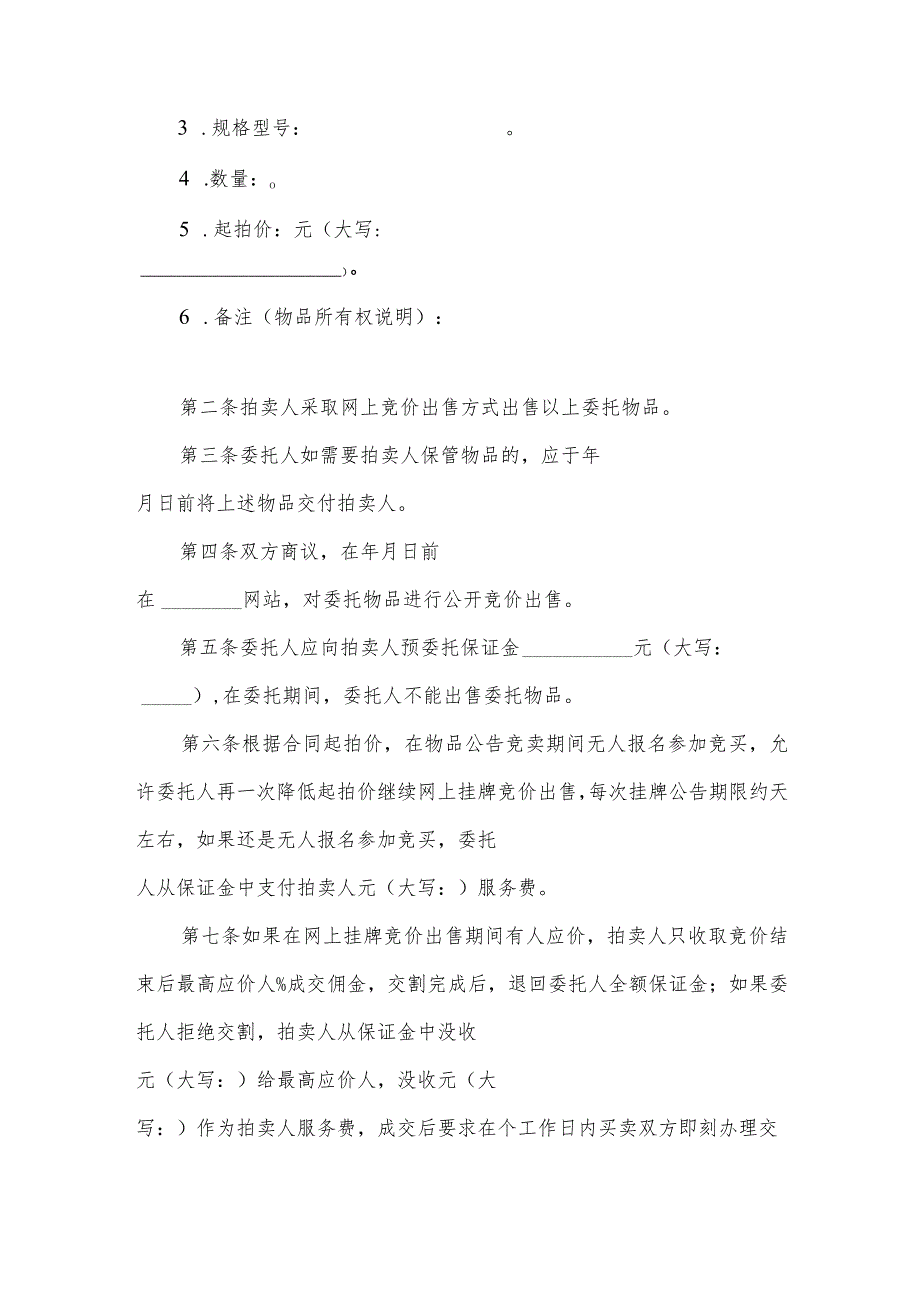 3 .规格型号：　　　　　　　　　　。
4 .数量：。
5 .起拍价：元（大写：
____________________）。
6 .备注（物品所有权说明）：
第二条拍卖人采取网上竞价出售方式出售以上委托物品。
第三条委托人如需要拍卖人保管物品的，应于年
月日前将上述物品交付拍卖人。
第四条双方商议，在年月日前
在 ________网站，对委托物品进行公开竞价出售。
第五条委托人应向拍卖人预委托保证金___________元（大写：
_____）,在委托期间，委托人不能出售委托物品。
第六条根据合同起拍价，在物品公告竞卖期间无人报名参加竞买，允
许委托人再一次降低起拍价继续网上挂牌竞价出售，每次挂牌公告期限约天
左右，如果还是无人报名参加竞买，委托
人从保证金中支付拍卖人元（大写：）服务费。
第七条如果在网上挂牌竞价出售期间有人应价，拍卖人只收取竞价结
束后最高应价人%成交佣金，交割完成后，退回委托人全额保证金；如果委
托人拒绝交割，拍卖人从保证金中没收
元（大写：）给最高应价人，没收元（大
写：）作为拍卖人服务费，成交后要求在个工作日内买卖双方即刻办理交